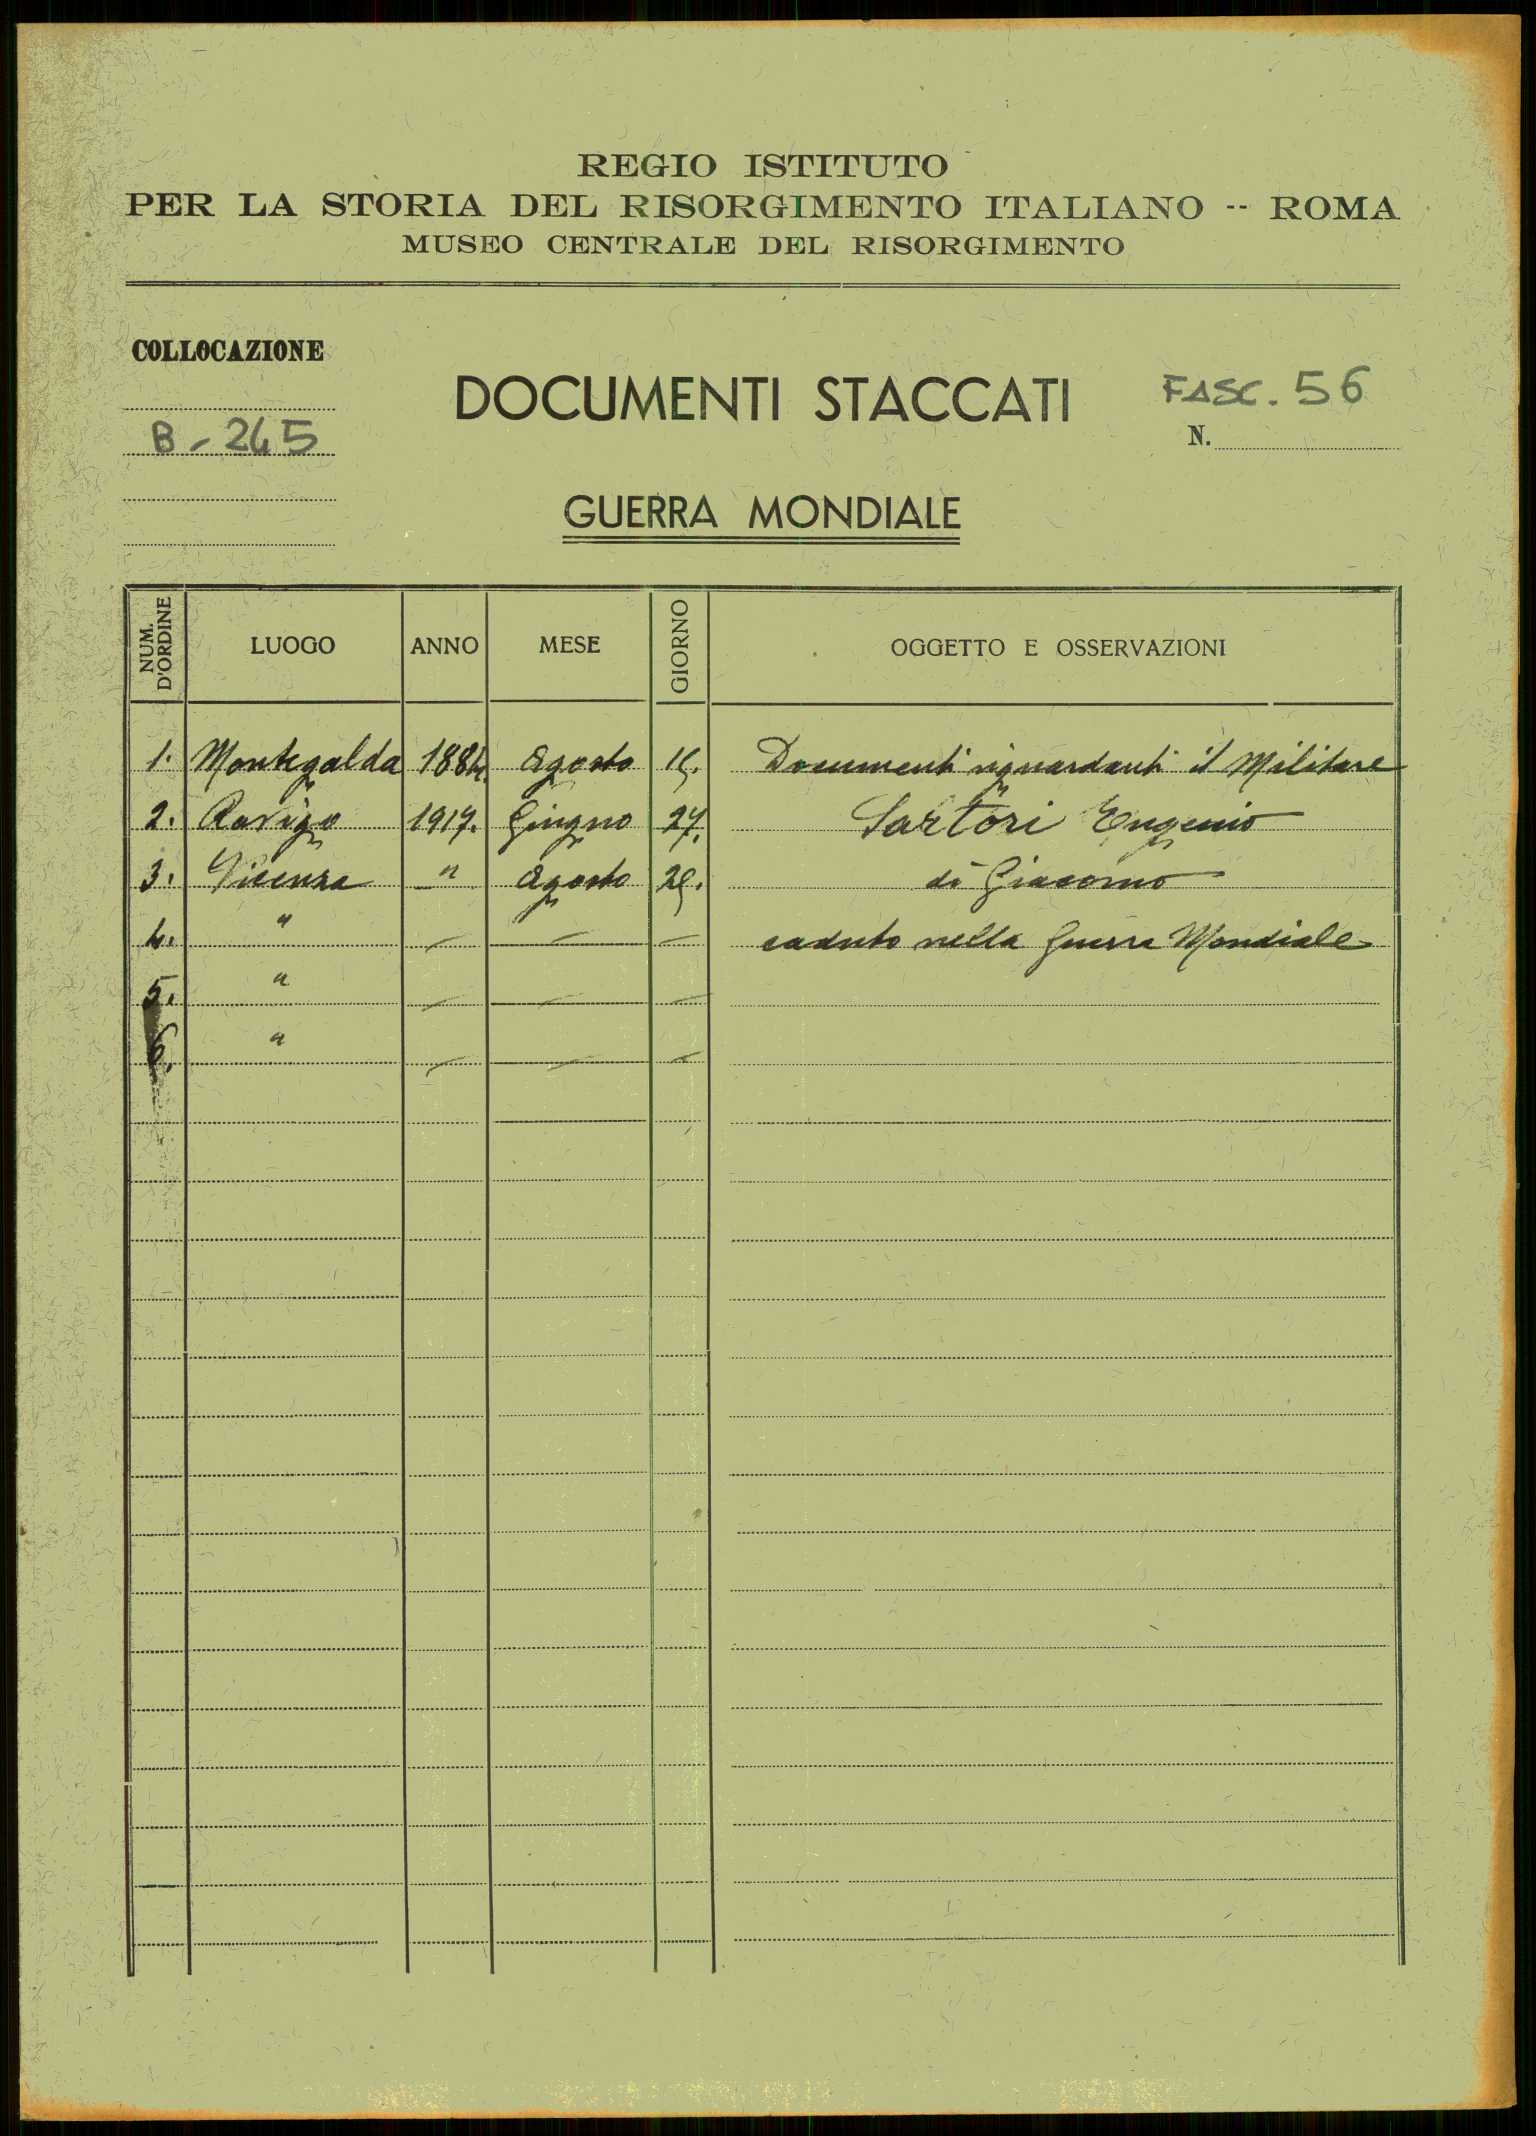 REGIO ISTITUTO
PER LA STORIA DEL RISORGIMENTO ITALIANO -- ROMA
MUSEO CENTRALE DEL RISORGIMENTO
COLLOCAZIONE
DOCUMENTI STACCATI
FASC. 56
B - 245
N.
GUERRA MONDIALE
NUM. D'ORDINE LUOGO ANNO MESE GIORNO OGGETTO E OSSERVAZIONI
1. Montegalda 1884. Agosto 15. Documenti riguardanti il Militare
2. Rovigo 1917. Giugno 27. Sartori Eugenio
3. Vicenza " Agosto 25. di Giacomo
4. " — — — caduto nella Guerra Mondiale
5. " — — —
6. " — — —